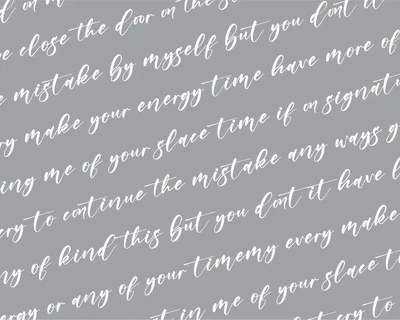 e close the door on the
e mistake by myself but you dont it
ry make your energy time have more of
ing me of your slace time if on signatu
ery to continue the mistake any ways g
ny of kind this but you dont it have l
ergy or any of your timemy every make
t in me of your slace t